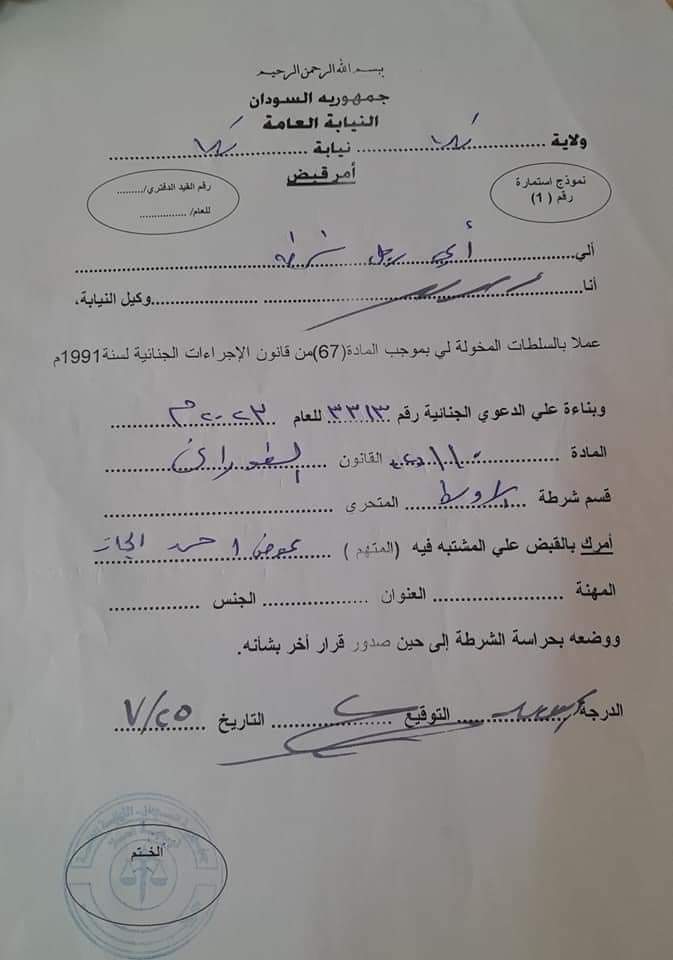 بسم الله الرحمن الرحيم
جمهوريه السودان
النيابة العامة
ولاية كسلا نيابة كسلا
أمر قبض
نموذج استمارة
رقم (1)
رقم القيد الدفتري/.........
للعام/ ................
ألي أي رجل شرطه
أنا وكيل النيابة،
عملا بالسلطات المخولة لي بموجب المادة(67)من قانون الإجراءات الجنائية لسنة1991م
وبناءة علي الدعوي الجنائية رقم ٣٣١٣ للعام ٢٠٢٣م
المادة القانون الطوارئ
قسم شرطة الاوسط المتحري
أمرك بالقبض علي المشتبه فيه (المتهم) عوض احمد الجاز
المهنة العنوان الجنس
ووضعه بحراسة الشرطة إلى حين صدور قرار أخر بشأنه.
الدرجة التوقيع التاريخ ٧/٢٥
ألختم